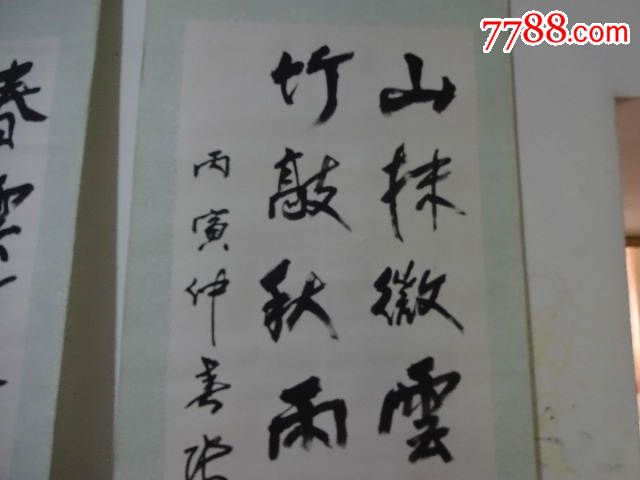 7788.com
山抹微雲
竹敲秋雨
丙寅仲春
春雲